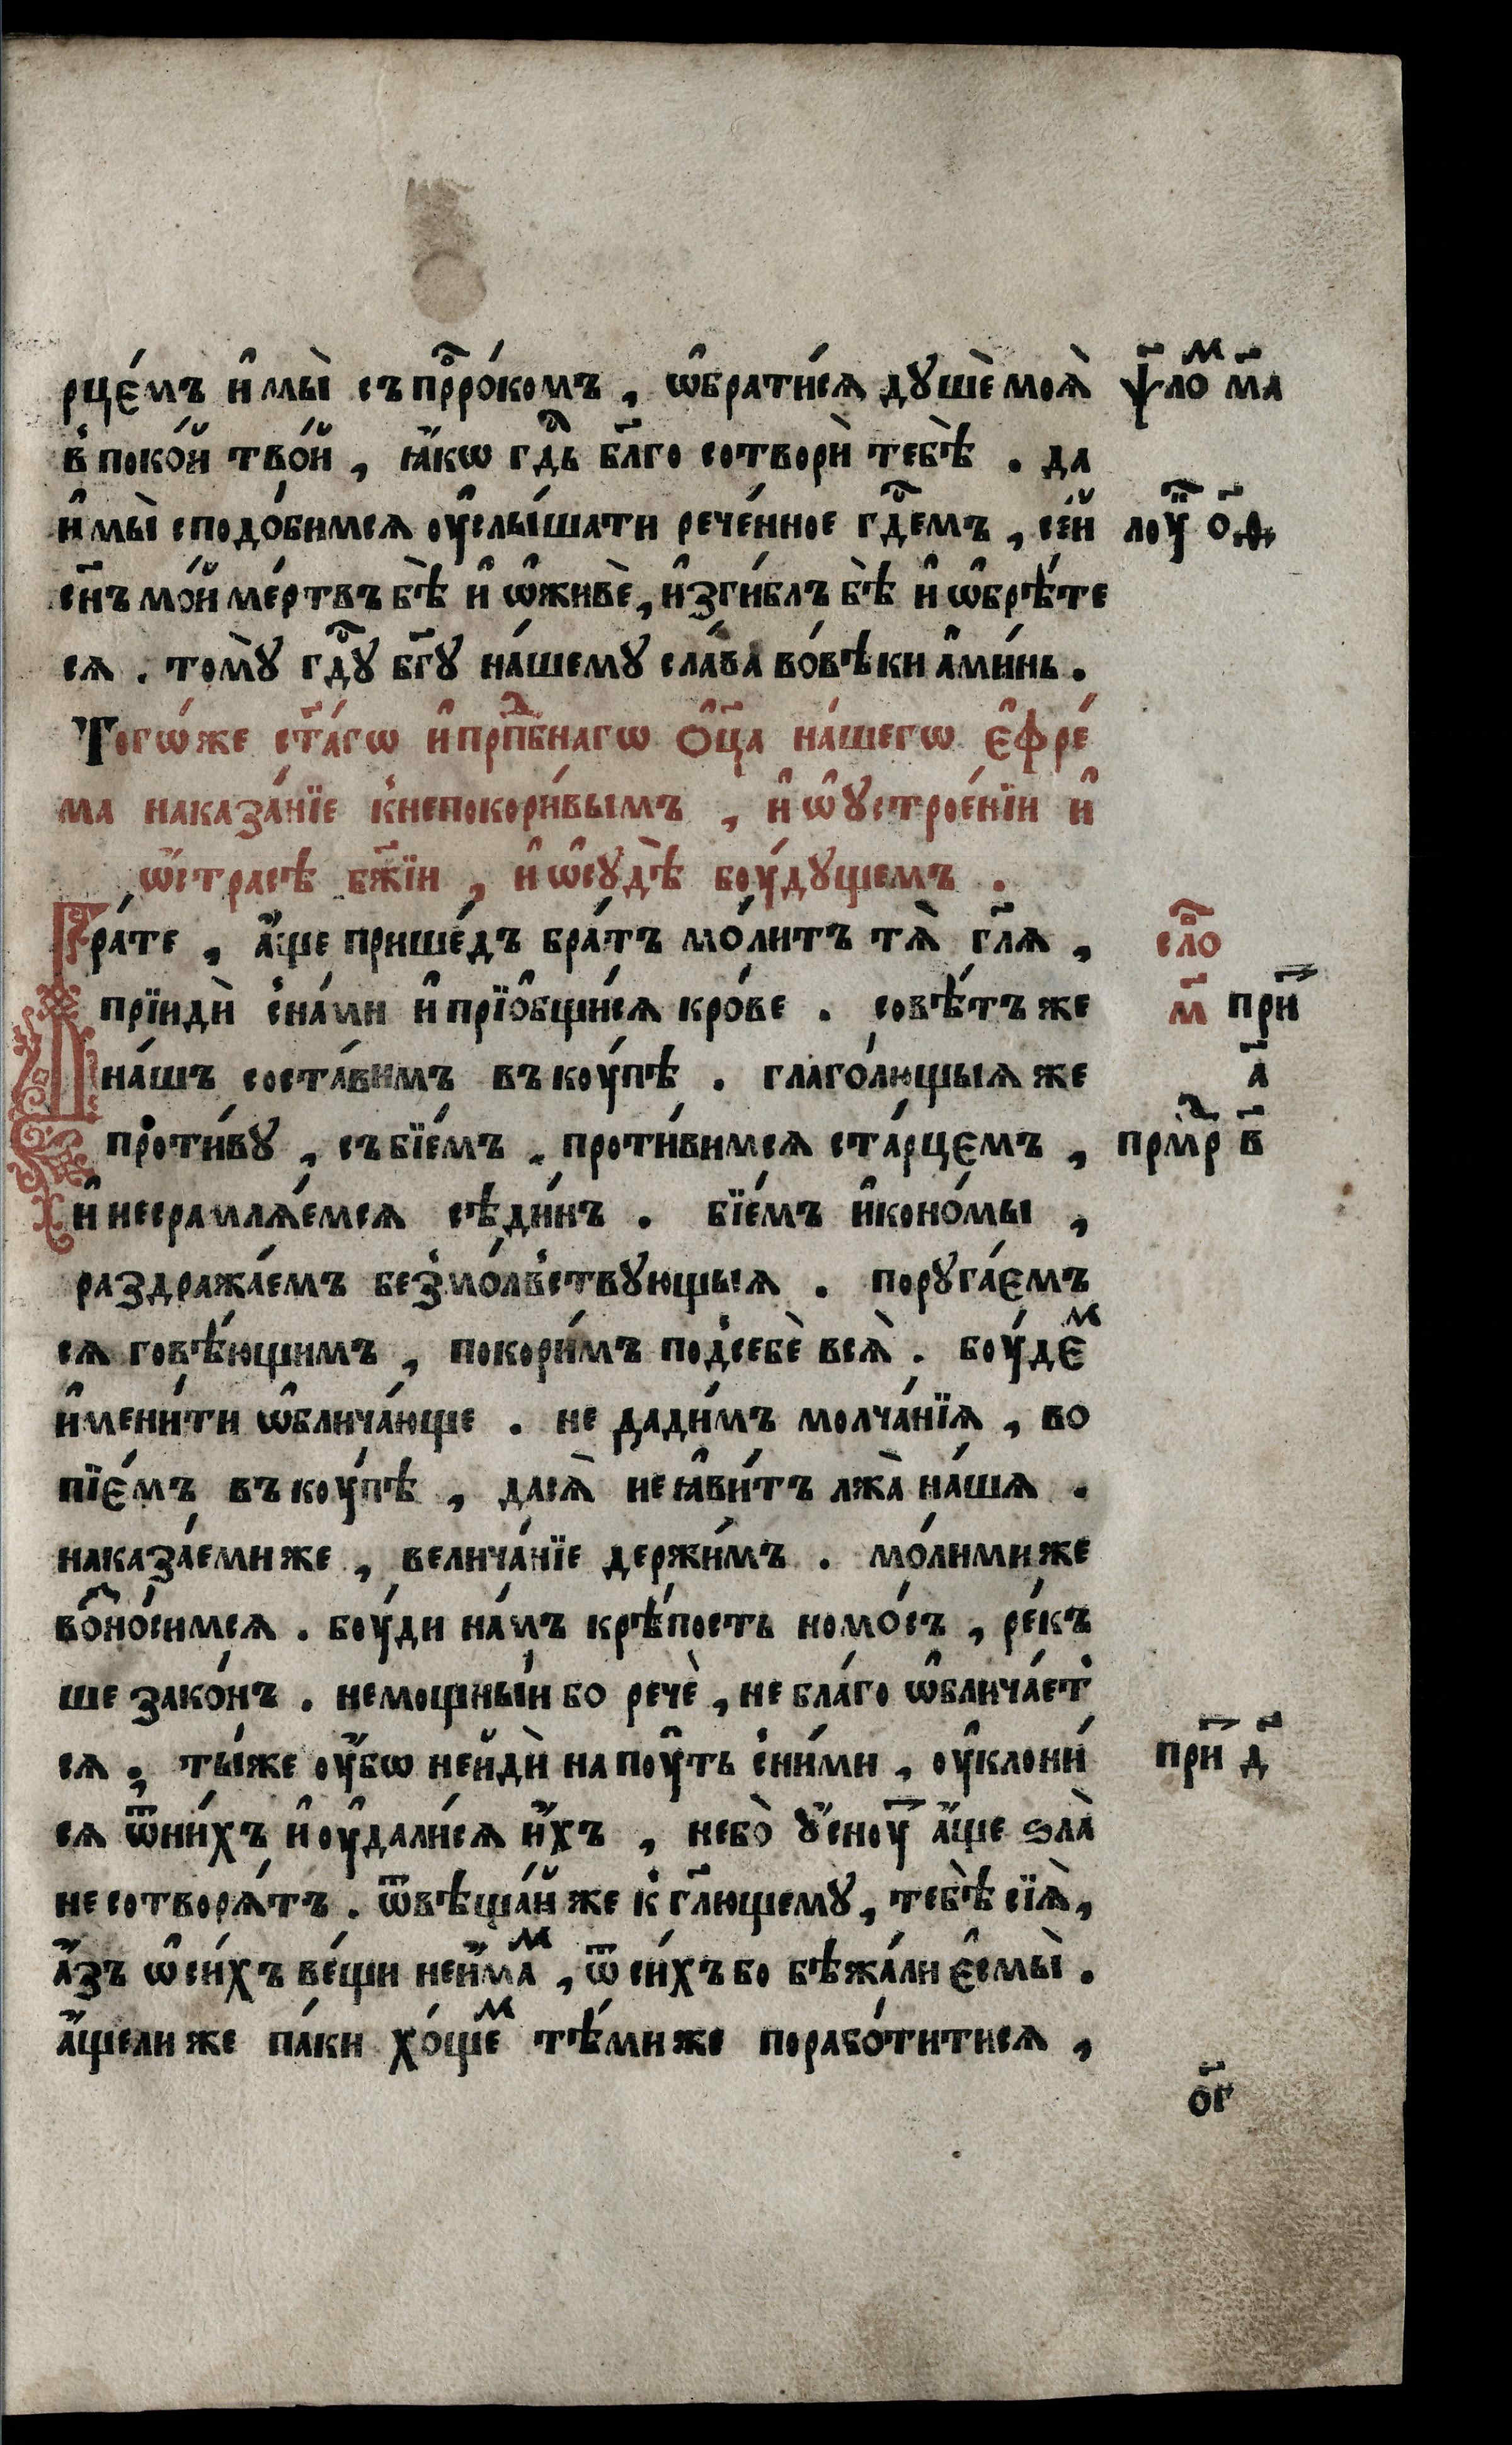 рце́мъ и҆мы̀ съпр҇ро́комъ, ѡ҆брати́сѧ дꙋшѐ моѧ̀ ѱ҃лоⷨ м҃а
в̾ поко́й тво́й, ꙗ҆́кѡ гдⷭ҇ь бл҃го сотворѝ тебѣ̀. да
и҆мы̀ сподо́бимсѧ оу҆слы́шати рече́нное гдⷭ҇емъ, се́й лоу҇ о҃ѳ
сн҃ъ мо́й ме́ртвъ бѣ̀ и҆ ѡ҆живѐ, и҆зги́блъ бѣ̀ и҆ ѡ҆брѣ́те
сѧ. томꙋ̀ гдⷭ҇ꙋ бг҃ꙋ на́шемꙋ сла́ва во́вѣки а҆ми́нь.
Тогѡ́же ст҃а́гѡ и҆прпⷣбнагѡ ѻ҆ц҃а на́шегѡ є҆фре́
ма наказа́нїе к̾непокори́вымъ, и҆ ѡ҆ꙋстрое́нїи и҆
ѡ҆стра́сѣ бж҃їи, и҆ѡ҆сꙋдѣ̀ боу́дꙋщемъ.
Бра́те, а҆́ще прише́дъ бра́тъ мо́литъ тѧ̀ гл҃ѧ, сло҇
прїидѝ с̾на́ми и҆ прїѻбщи́сѧ кро́ве. совѣ́тъ же м҃ при҇
на́шъ соста́вимъ въ коу́пѣ. глаго́лющыѧ же а҃
проти́вꙋ, съ бїе́мъ, проти́вимсѧ ста́рцемъ, прмⷣр в҃
и҆ несрамлѧ́емсѧ сѣди́нъ. бїе́мъ и҆коно́мы,
раздража́емъ без̾мо́лв̾ствꙋющыѧ. порꙋга́емъ
сѧ говѣ́ющимъ, покори́мъ под̾себѐ всѧ̀. боу́деⷨ
и҆мени́ти ѡ҆блича́юще. не дади́мъ молча́нїѧ, во
пїе́мъ въ коу́пѣ, дасѧ̀ не ꙗ҆ви́тъ лжа̀ на́шѧ.
наказа́еми же, велича́нїе держи́мъ. мо́лими же
во҇но́симсѧ. боу́ди на́мъ крѣ́пость номо́съ, ре́къ
ше зако́нъ. немощны́й бо речѐ, не бла́го ѡ҆блича́ет̾
сѧ; ты́же оу҆́бѡ нейдѝ на поу҆ть с̾ни́ми, оу҆клони́ при҇ д҃
сѧ ѿни́хъ и҆ оу҆дали́сѧ и҆́хъ, небо̀ ꙋ҆́сноу҃ а҆́ще ѕла̀
не сотворѧ́тъ. ѿвѣща́й же к̾ гл҃ющемꙋ, тебѣ̀ сїѧ̀,
а҆́зъ ѡ҆ си́хъ ве́щи неи҆́маⷨ, ѿ си́хъ бо бѣжа́ли є҆смы̀.
а҆́щели же па́ки хо́щеⷨ тѣ́миже порабо́титисѧ,
о҃г